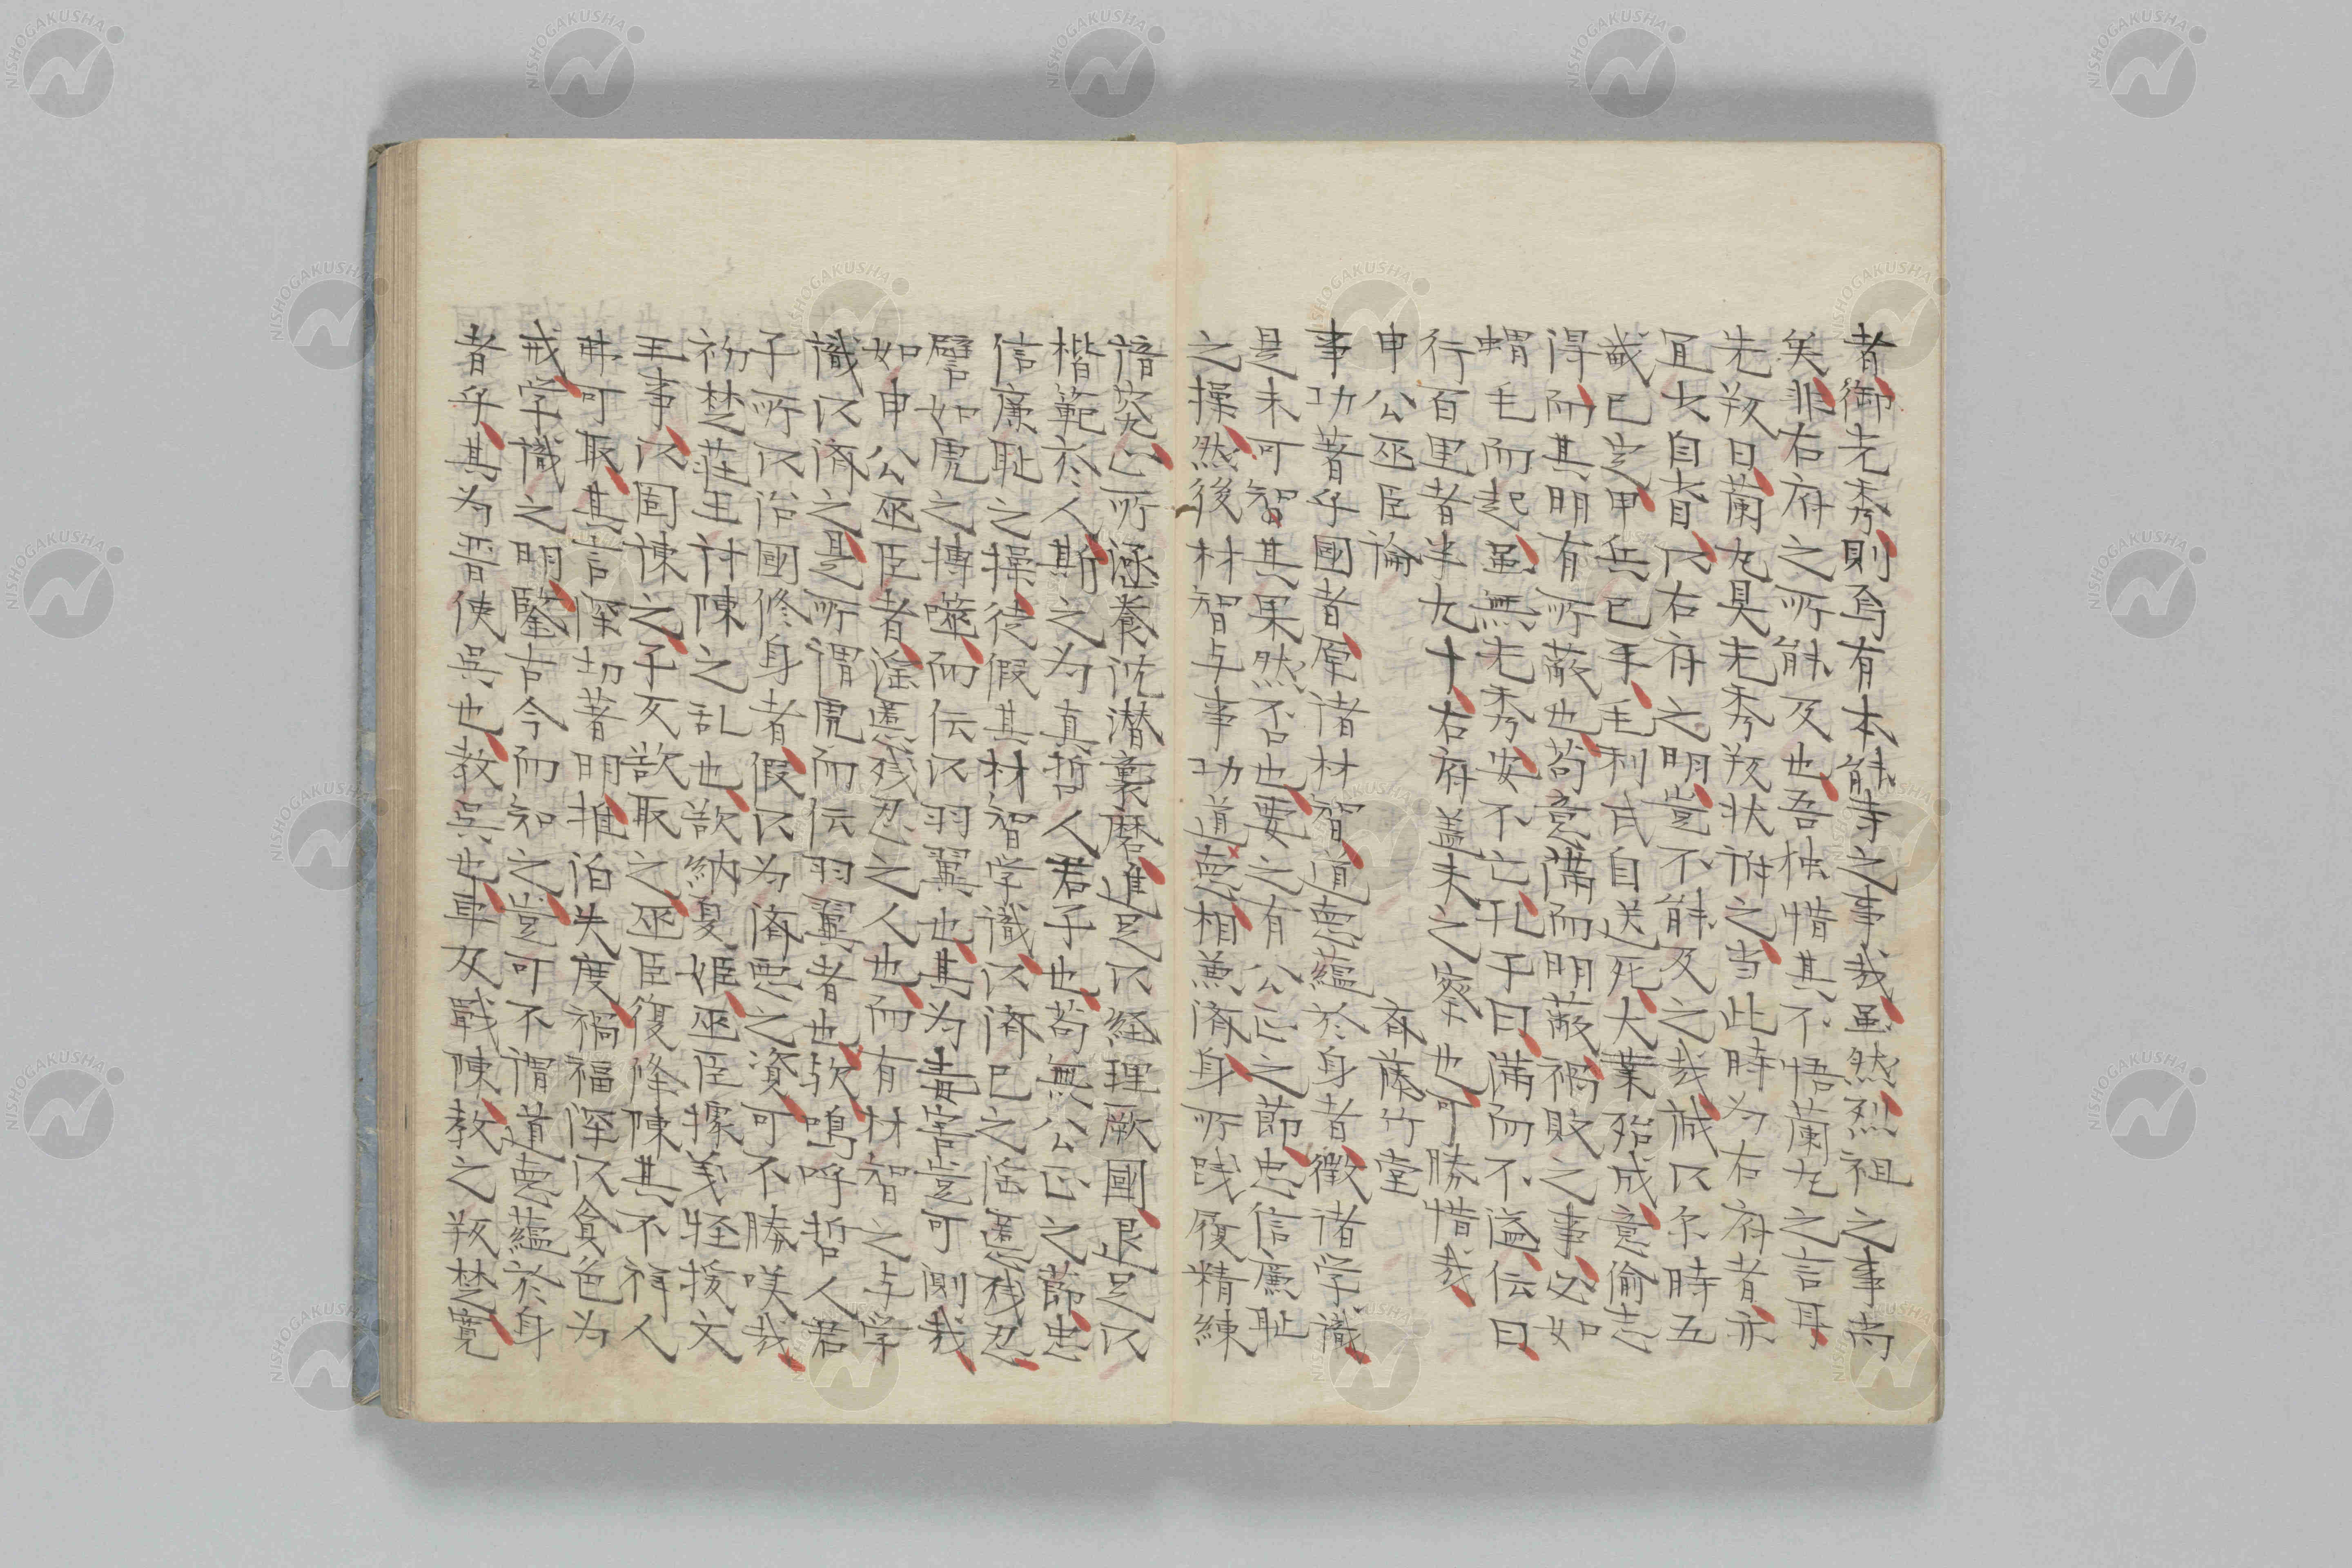 者御光秀則焉有本能寺之事哉虽然烈祖之事尚
矣非右府之所能及也吾独惜其不悟蘭丸之言耳
先弑日蘭丸具光秀弑状訴之当此時為右府者亦
宜大自省以右府之明豈不能及之哉誠以尔時五
畿已定甲兵已手毛利氏自送死大業殆成意偷志
得而其明有所蔽也苟意満而明蔽禍敗之事必如
蝟毛而起虽無光秀安不亡孔子曰満而不溢伝曰
行百里者半九十右府盖未之察也可勝惜哉
申公巫臣論　斉藤竹堂
事功著乎國者原諸材智道悳蘊於身者徴諸学識
是未可智其果然不也要之有公正之節忠信廉耻
之操然後材智与事功道悳相兼済身所践履精練
涵養沈潜裏磨進足以経理厥國退足以
楷範於人斯之为真哲人君子也苟無公正之節忠
信廉耻之操徒假其材智学識以済已之淫慝残忍
譬如虎之搏噬而伝以羽翼也其为毒害豈可測哉
如申公巫臣者淫慝残忍之人也而有材智之与学
識以済之是所謂虎而伝羽翼者也欤嗚呼哲人君
子所以治國修身者假以为済悪之資可不勝嘆哉
初楚荘王討陳之乱也欲納夏姫巫臣據義怪援文
王事以固諫之子反欲取之巫臣復降陳其不祥人
弗可取其言深切著明推伯失度禍福深以貪色为
戒学識之明鑒古今而知之豈可不謂道悳蘊於身
者乎其为晋使呉也教呉也車及戰陳教之弑楚寛